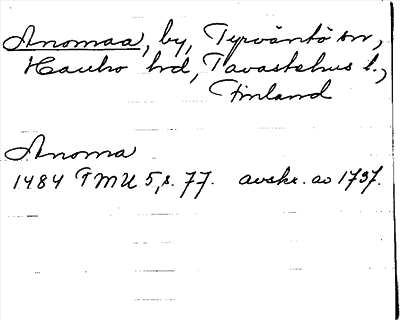 Anomaa, by, Tyrväntö sn,
Hauho hd, Tavastehus l.,
Finland
Anoma
1484 FMU 5, s. 77. avskr. av 1737.